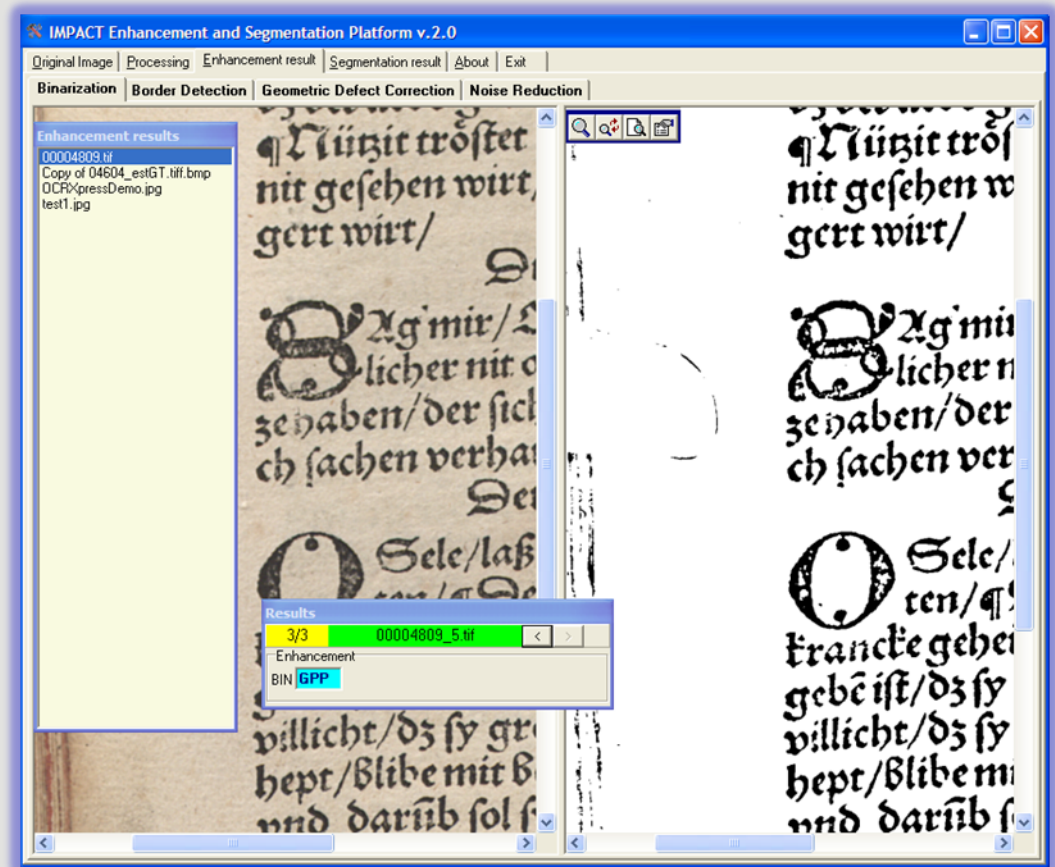 IMPACT Enhancement and Segmentation Platform v.2.0
Original Image Processing Enhancement result Segmentation result About Exit
Binarization Border Detection Geometric Defect Correction Noise Reduction
Enhancement results
00004809.tif
Copy of 04604_estGT.tiff.bmp
OCRXpressDemo.jpg
test1.jpg
¶Nützit tröstet
nit gesehen wirt,
gert wirt/
SAg mir/
licher nit o
zehaben/der sich
ch sachen verhan
Der
O Sele/laß
villicht/dz sy gr
hept/Blibe mit
vnd darūb sol s
Results
3/3 00004809_5.tif < >
Enhancement
BIN GPP
¶Nützit trös
nit gesehen w
gert wirt/
SAg mir
licher n
zehaben/der
ch sachen ver
O Sele/
ten/¶
krancke gehei
gebē ist/dz sy
villicht/dz sy
hept/Blibe mi
vnd darūb s